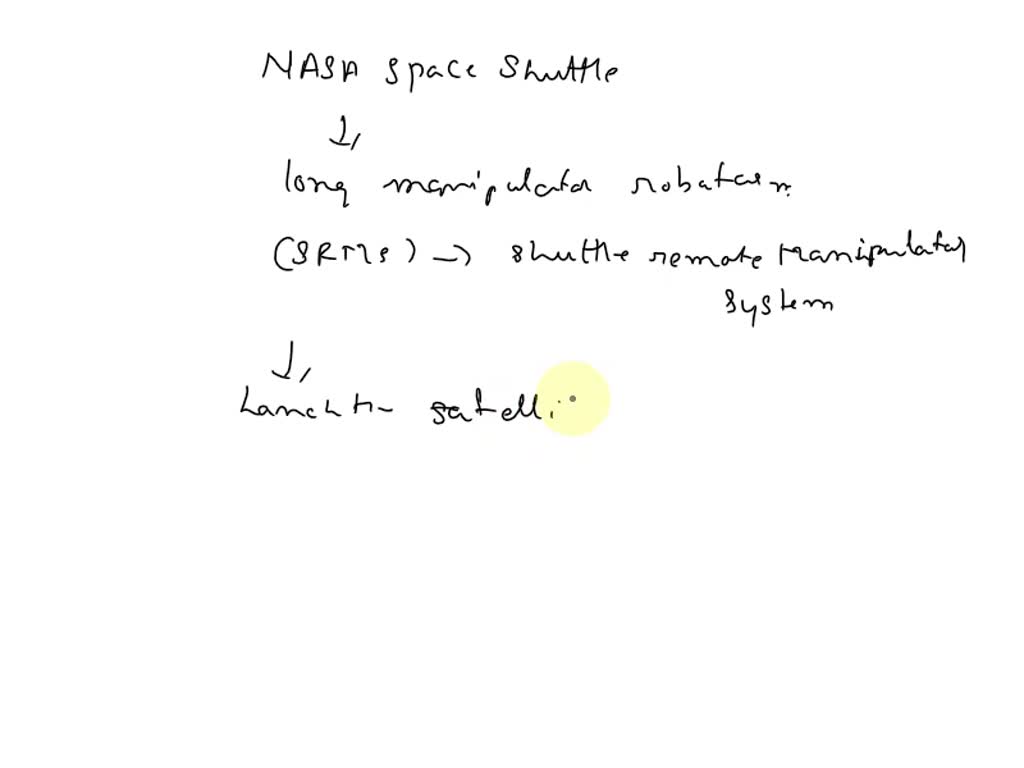 NASA space shuttle
long manipulator robotarm.
(SRMs) → shuttle remote manipulator
system
Lanch the satelli